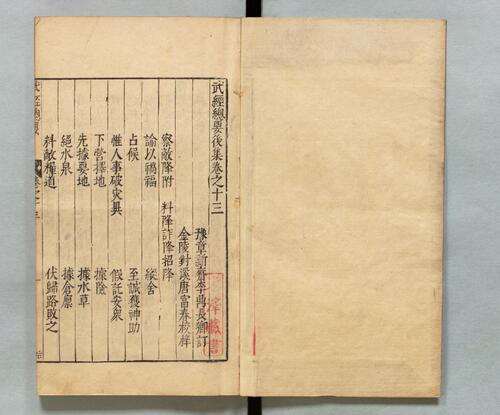 武經總要後集卷之十三
豫章新齋李鼎長卿訂
金陵對溪唐富春校梓
察敵降附 料降詐降招降
諭以禍福 縱舍
占候 至誠獲神助
惟人事破災異 假託安衆
下營擇地 據險
先據要地 據水草
絕水泉 據倉廪
料敵糧道 伏歸路敗之
武經總要
藏書